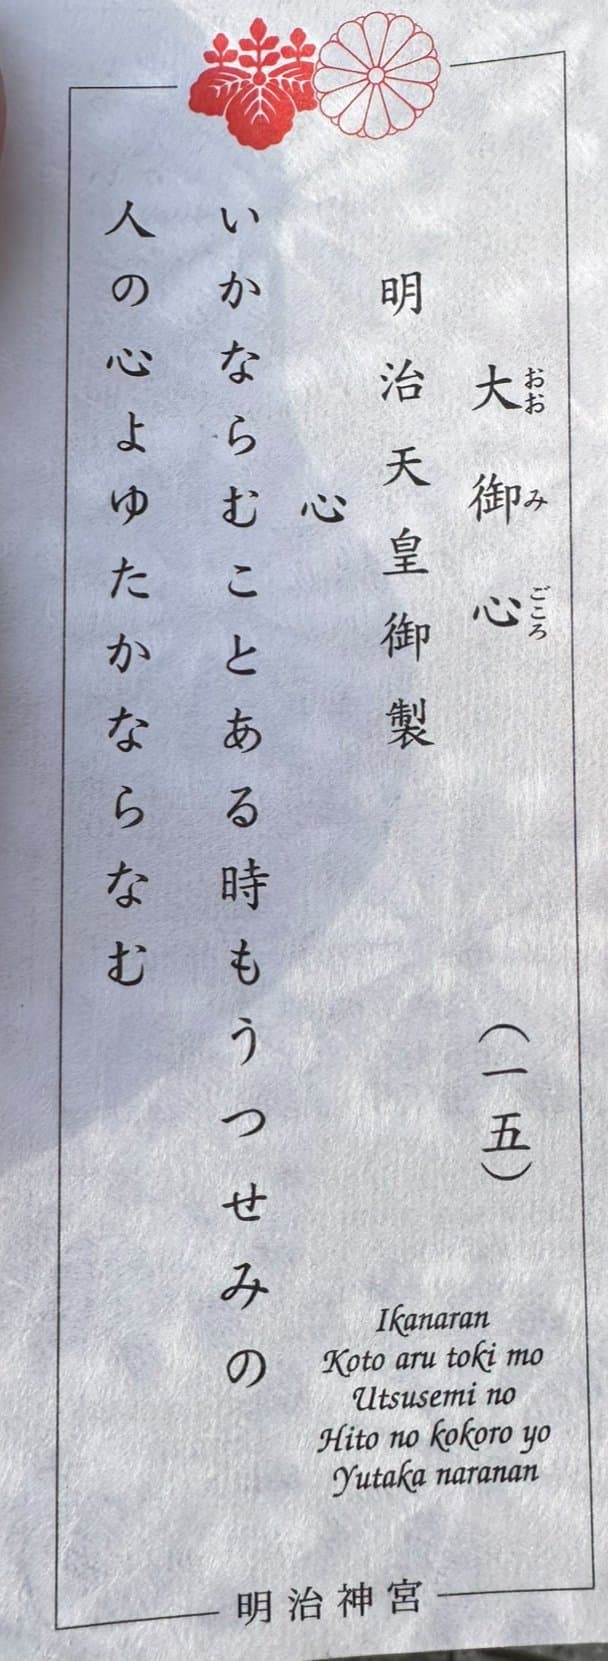 大御心 (一五)
おおみごころ
明治天皇御製
心
いかならむことある時もうつせみの
人の心よゆたかならなむ
Ikanaran
Koto aru toki mo
Utsusemi no
Hito no kokoro yo
Yutaka naranan
明治神宮